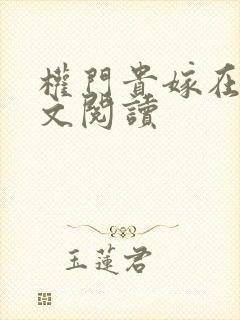 權門貴嫁在
文閱讀
玉蓮君